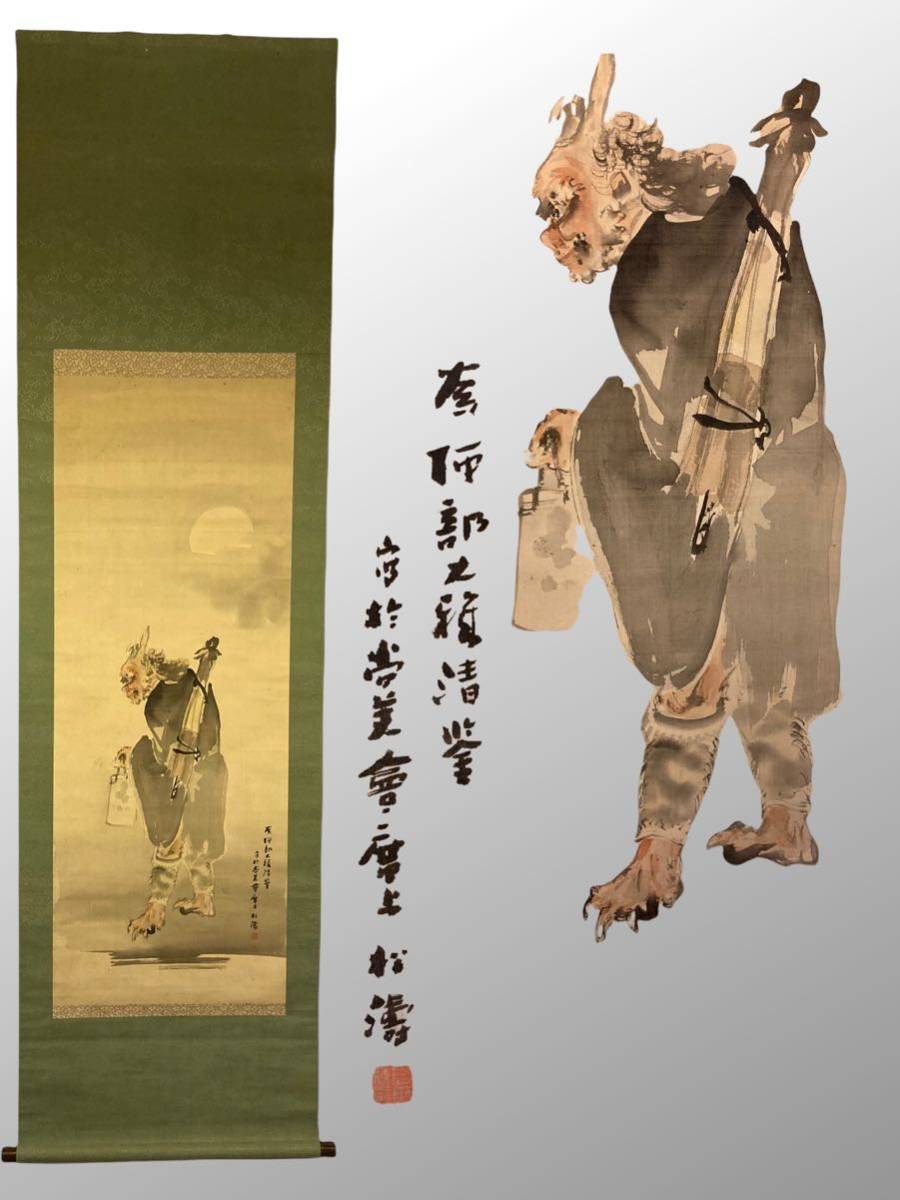 阿部大雅清鑒
寫於尚美會席上 松濤